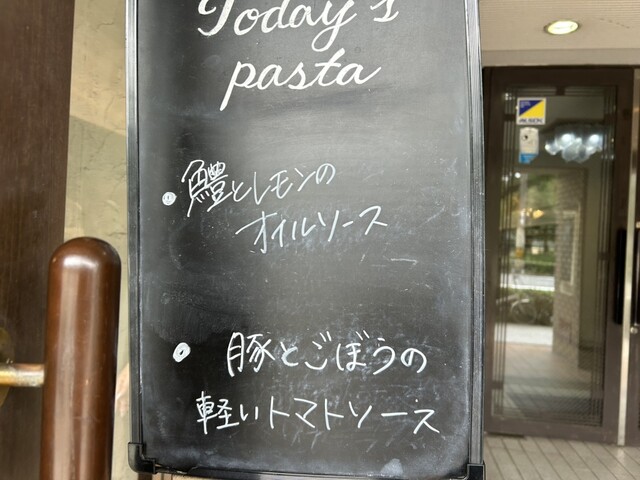 Today's
pasta
鱧とレモンの
オイルソース
豚とごぼうの
軽いトマトソース
ALSOK